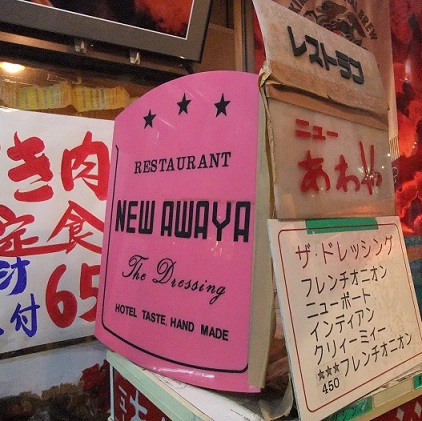 き肉
定食
汁
付
65
★★★
RESTAURANT
NEW AWAYA
The Dressing
HOTEL TASTE, HAND MADE
レストラン
ニュー
あわや
ザ・ドレッシング
フレンチオニオン
ニューポート
インディアン
クリィーミィー
★★★フレンチオニオン
450